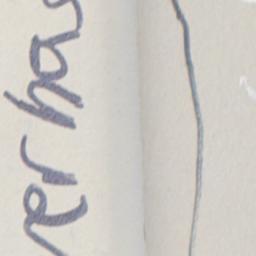 er has